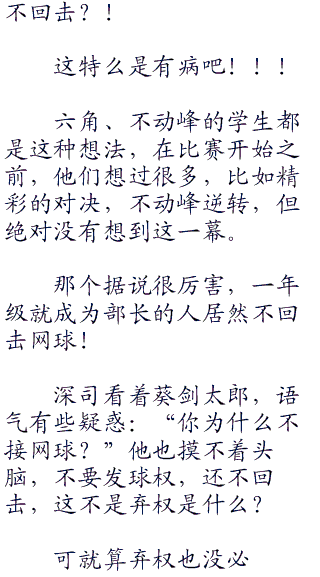 不回击？！
这特么是有病吧！！！
六角、不动峰的学生都
是这种想法，在比赛开始之
前，他们想过很多，比如精
彩的对决，不动峰逆转，但
绝对没有想到这一幕。
那个据说很厉害，一年
级就成为部长的人居然不回
击网球！
深司看着葵剑太郎，语
气有些疑惑：“你为什么不
接网球？”他也摸不着头
脑，不要发球权，还不回
击，这不是弃权是什么？
可就算弃权也没必